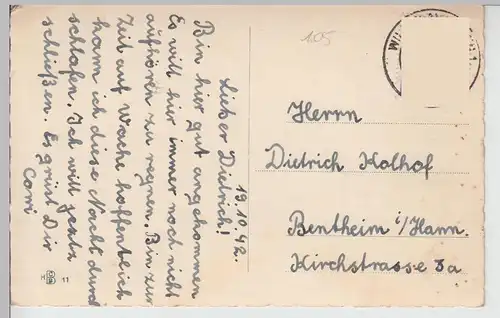 19.10.42.
Lieber Dietrich!
Bin hier gut angekommen
Es will hier immer noch nicht
aufhören zu regnen. Bin zur
Zeit auf Wache hoffentlich
kann ich diese Nacht durch
schlafen. Ich will jetzt
schließen. Es grüßt Dir
Corri
105
Herrn
Dietrich Kalhof
Bentheim i/Hann.
Kirchstrasse 3a
11